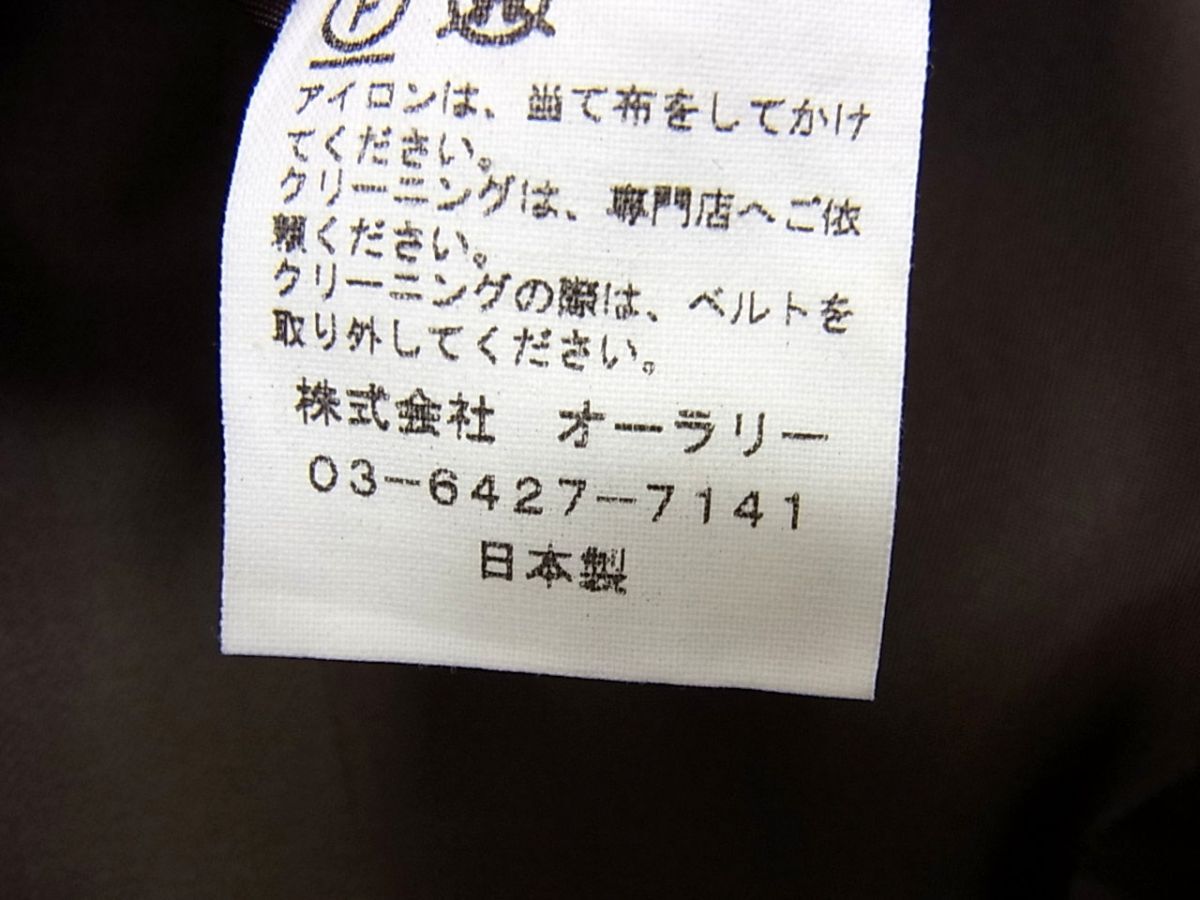 P
アイロンは、当て布をしてかけ
てください。
クリーニングは、専門店へご依
頼ください。
クリーニングの際は、ベルトを
取り外してください。
株式会社　オーラリー
03-6427-7141
日本製